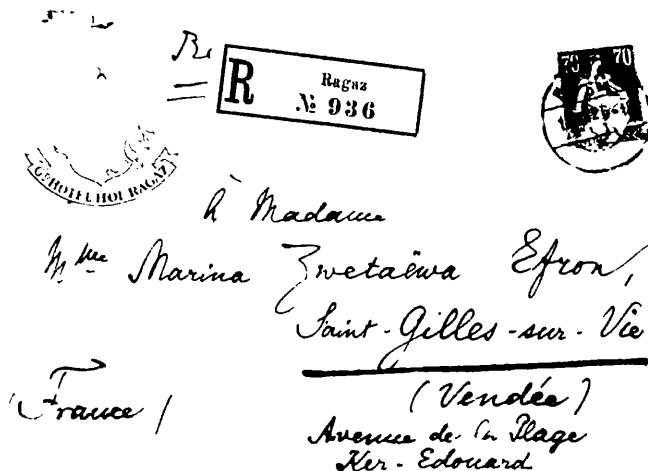 R
Ragaz
№ 936
70 70
GD HOTEL HOF RAGAZ
À Madame
Mme Marina Zwetaëwa Efron,
Saint-Gilles-sur-Vie
(Vendée)
(France)
Avenue de la Plage
Ker-Edouard